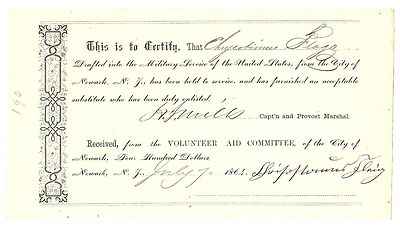 This is to Certify, That Chrysostimus Flaga
Drafted into the Military Service of the United States, from the City of
Newark, N. J., has been held to service, and has furnished an acceptable
substitute who has been duly enlisted.
Capt'n and Provost Marshal.
Received, from the VOLUNTEER AID COMMITTEE, of the City of
Newark, Four Hundred Dollars.
Newark, N. J., July 7 1864.
190